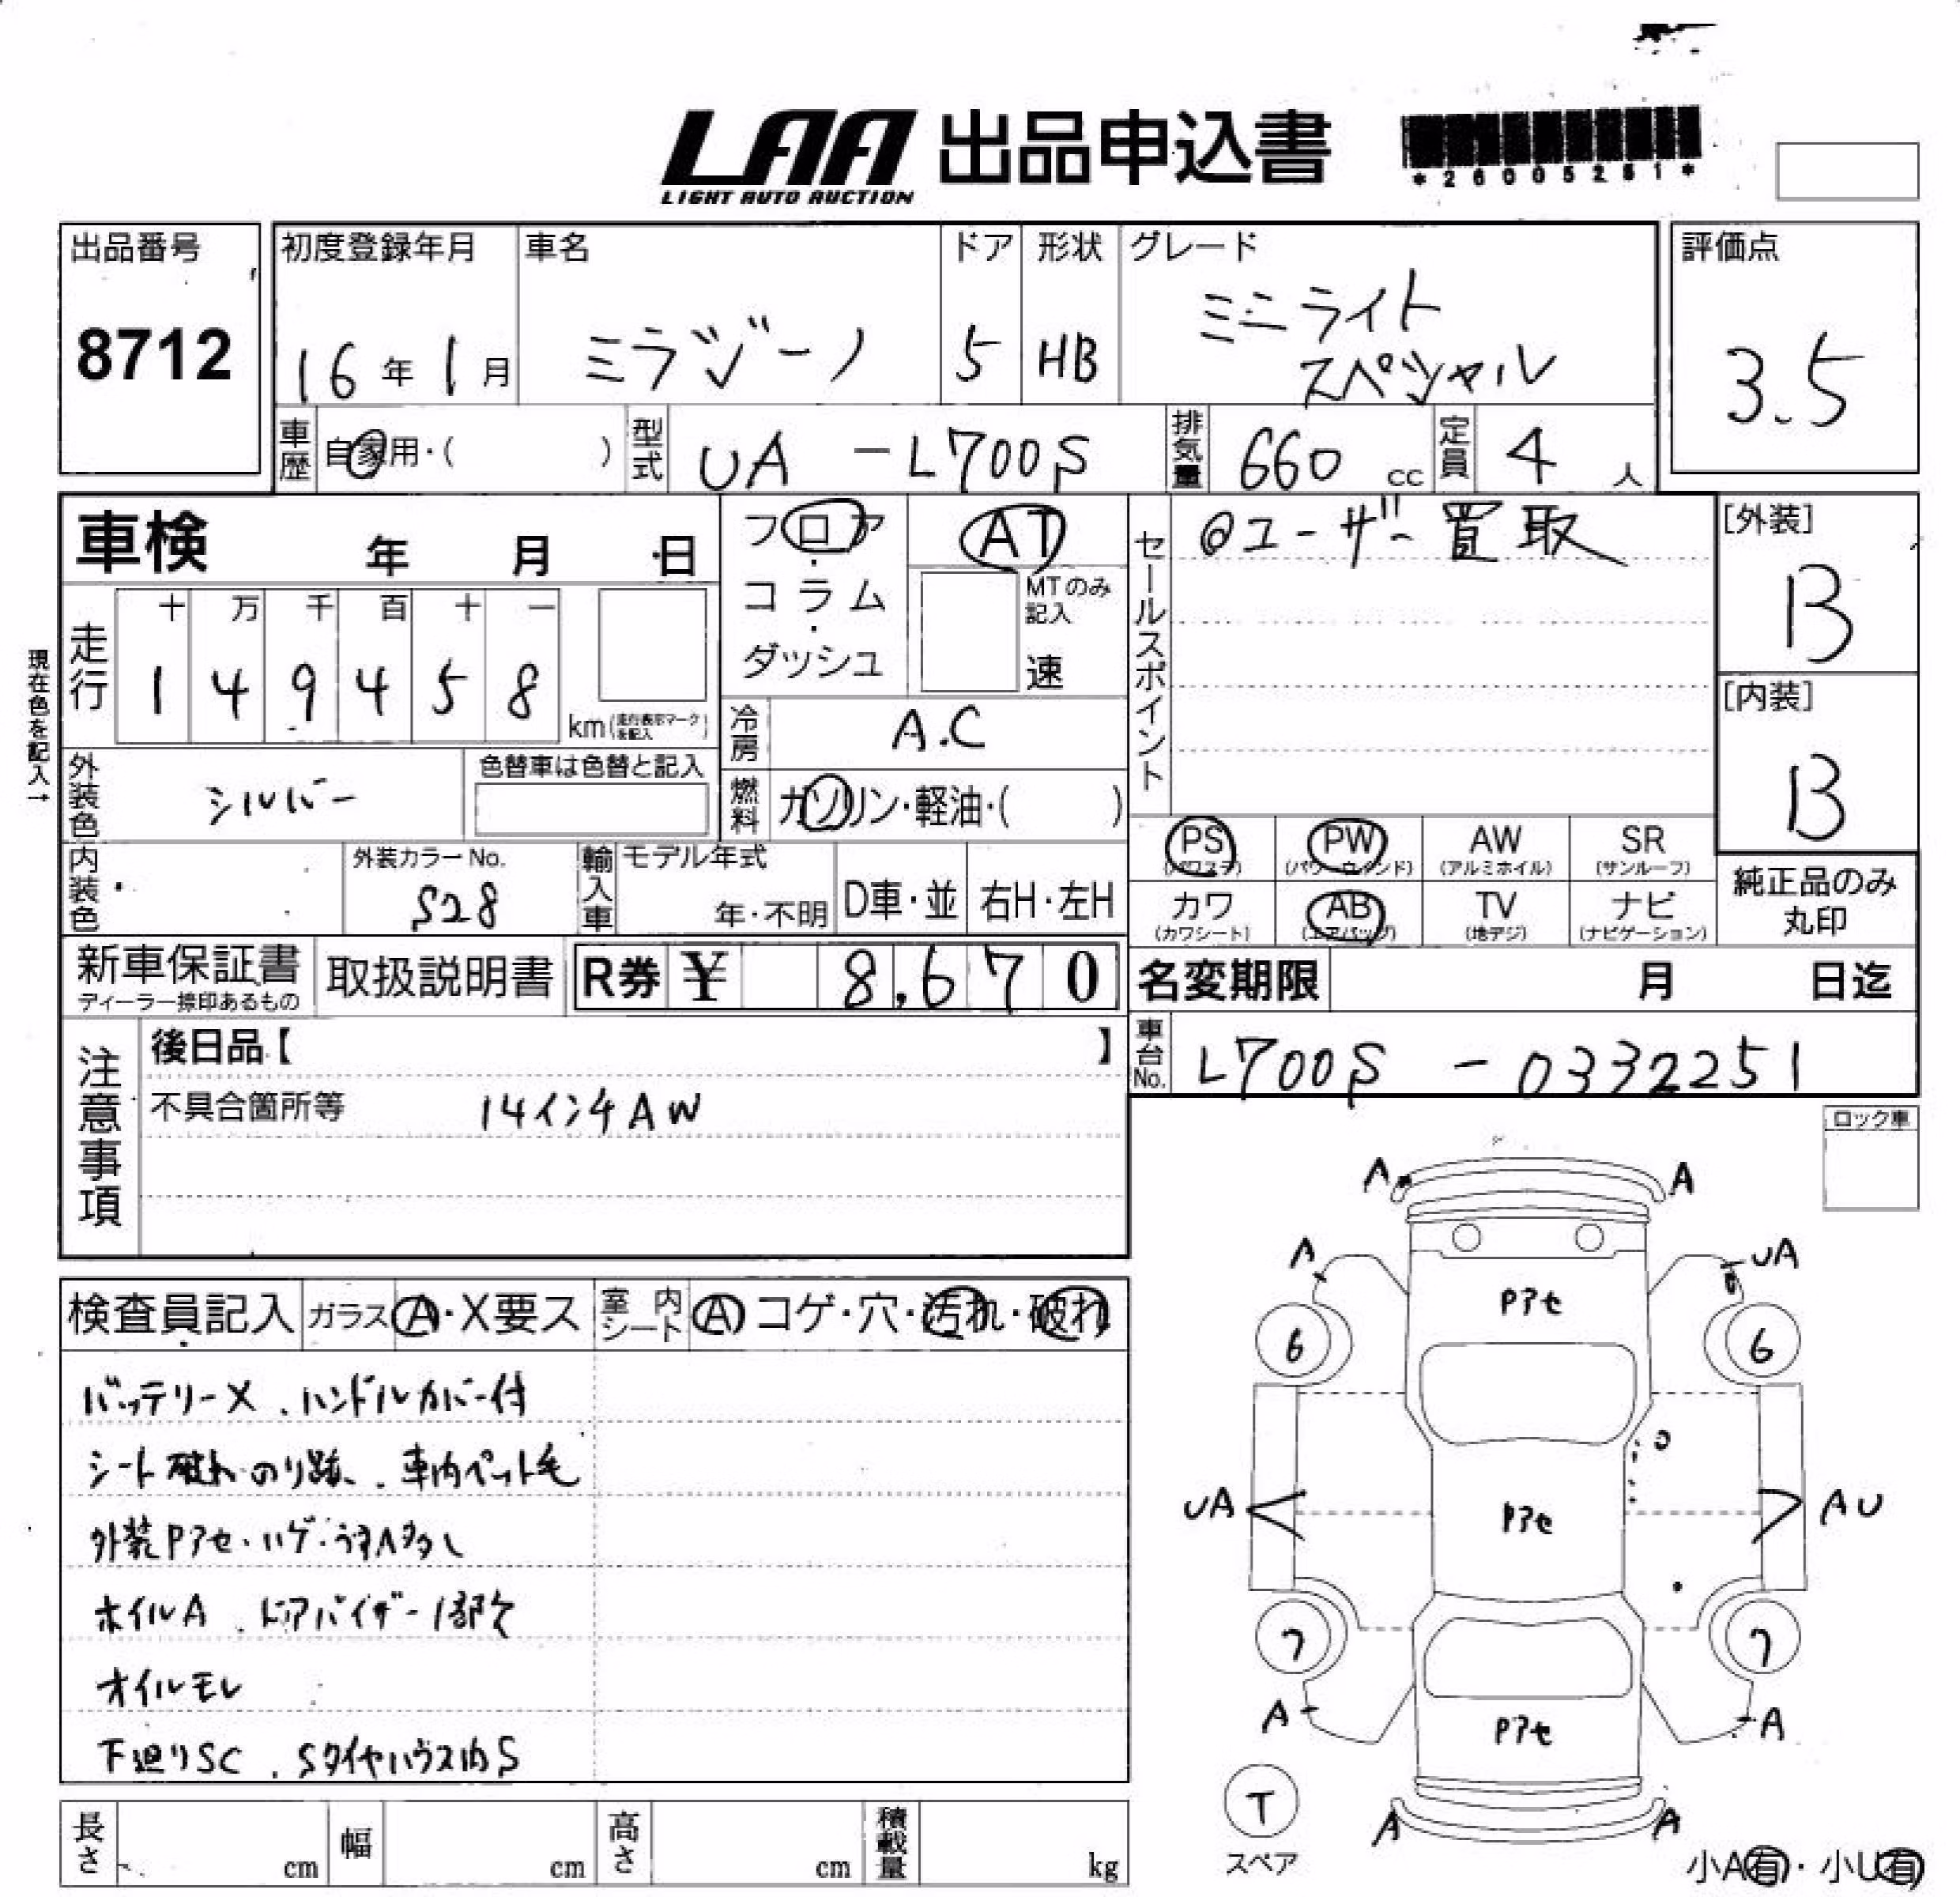 LAA 出品申込書
LIGHT AUTO AUCTION
出品番号
8712
初度登録年月
16年1月
車名
ミラジーノ
ドア
5
形状
HB
グレード
ミニライト
スペシャル
評価点
3.5
車歴 自家用・( )
型式 UA-L700S
排気量 660cc
定員 4人
車検 年 月 日
フロア・
コラム・
ダッシュ
AT
MTのみ
記入
速
セールスポイント
@ユーザー買取
[外装]
B
[内装]
B
現在色を記入→
走行
十 万 千 百 十 一
1 4 9 4 5 8
km(走行表示マークを記入)
冷房 A.C
外装色 シルバー
色替車は色替と記入
燃料 ガソリン・軽油・( )
内装色
外装カラーNo.
S28
輸入車
モデル年式
年・不明
D車・並
右H・左H
PS
(パワステ)
PW
(パワーウインド)
AW
(アルミホイル)
SR
(サンルーフ)
カワ
(カワシート)
AB
(エアバッグ)
TV
(地デジ)
ナビ
(ナビゲーション)
純正品のみ
丸印
新車保証書
ディーラー捺印あるもの
取扱説明書
R券 ¥ 8,670
名変期限 月 日迄
車台No. L700S-0332251
注意事項
後日品【 】
不具合箇所等 14インチAW
ロック車
検査員記入
ガラス A・X要ス
室内シート A コゲ・穴・汚れ・破れ
バッテリーX、ハンドルカバー付
シート破れ のり跡、車内ペット毛
外装Pアセ・ハゲ・うすA多し
ホイルA、ドアバイザー1部欠
オイルモレ
下廻りSC、Sタイヤハウス内S
A A
A UA
Pアセ
6 6
UA Pアセ AU
7 7
A Pアセ A
T
スペア
A A
小A有・小U有
長さ cm
幅 cm
高さ cm
積載量 kg